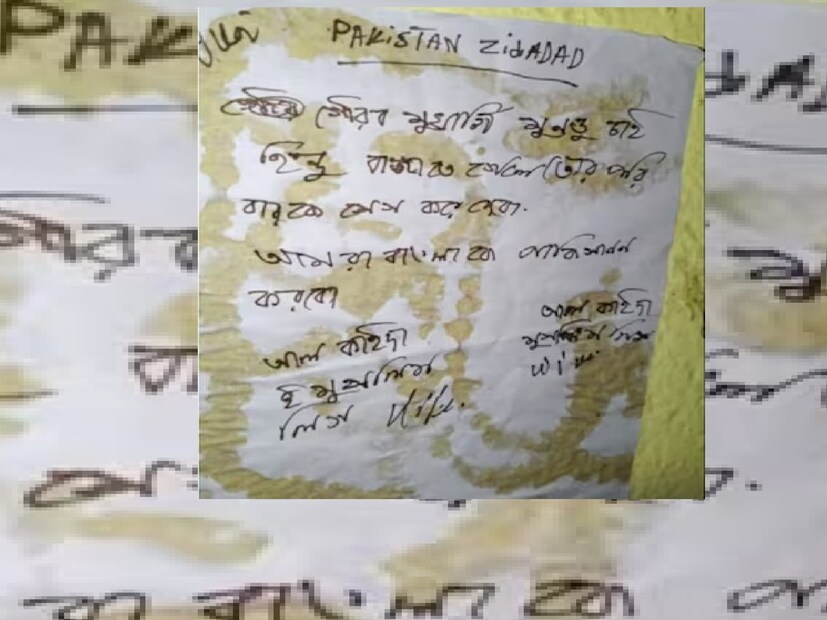 PAKISTAN ZidADAD
গৌরব মুখার্জী মুন্ডু চাই
হিন্দু বাঁচাতে গেলে তোর পরি
বারকে শেষ করে দেবো.
আমরা বাংলাকে পাকিস্তান
করবো
আল কাইদা
মুসলিম লিগ
আল কাইদা
ই মুসলিম
লিগ